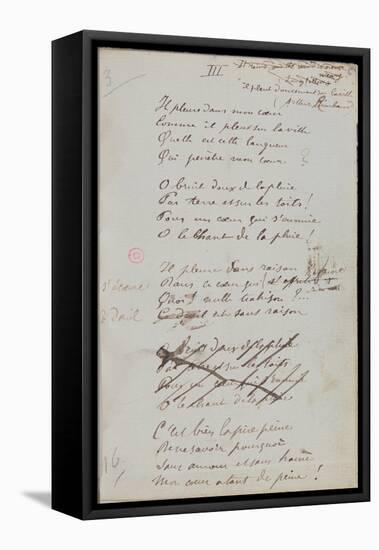 3
III
Il pleut doucement sur la ville
(Arthur Rimbaud)
Il pleure dans mon cœur
Comme il pleut sur la ville
Quelle est cette langueur
Qui pénètre mon cœur ?
O bruit doux de la pluie
Par terre et sur les toits !
Pour un cœur qui s'ennuie
O le chant de la pluie !
Il pleure sans raison
Dans ce cœur qui
s'écœure
Quoi ! nulle trahison ?...
deuil
Ce deuil est sans raison
O bruit doux de la pluie
Par terre et sur les toits
Pour un cœur qui s'ennuie
O le chant de la pluie
C'est bien la pire peine
De ne savoir pourquoi
Sans amour et sans haine
Mon cœur a tant de peine !
16